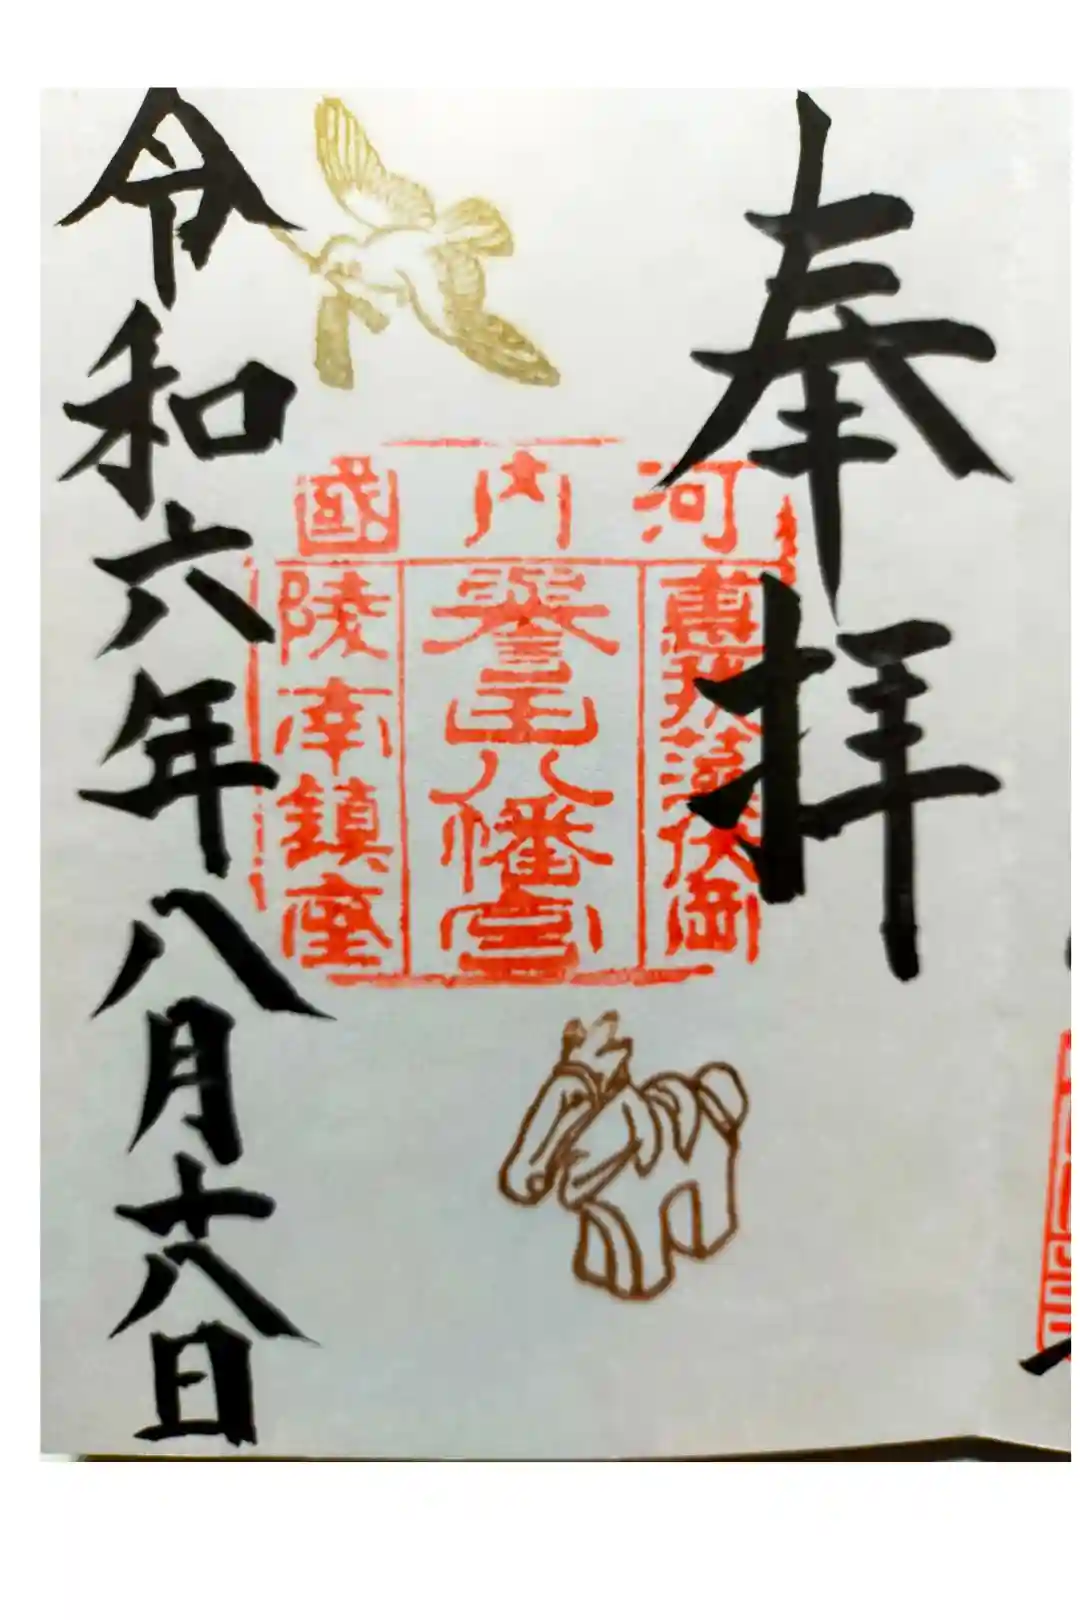 奉拝
河内國
惠我藻伏岡
譽田八幡宮
陵南鎮座
令和六年八月十八日